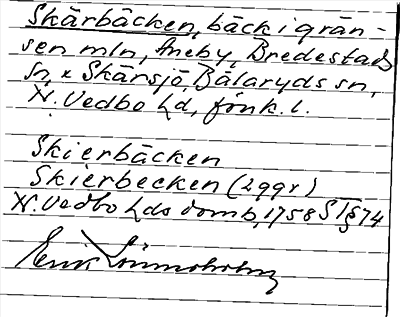 Skärbäcken, bäck i grän-
sen mln, Aneby, Bredestads
sn, x Skärsjö, Bälaryds sn,
N. Vedbo hd, Jönk. l.
Skierbäcken
Skierbecken (2 ggr)
N. Vedbo hds domb, 1758 § 74
Erik